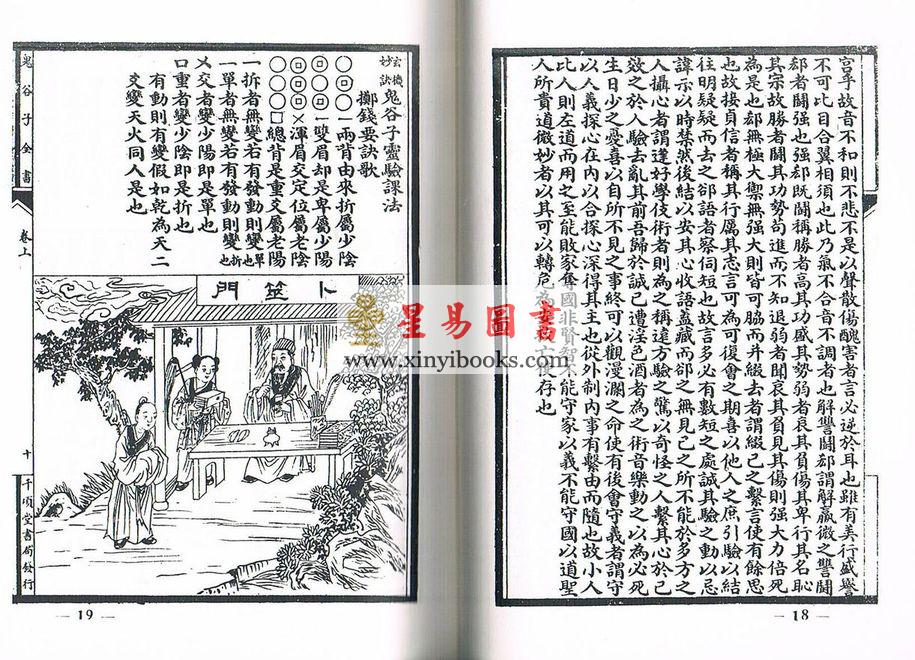 宮乎故音不和則不悲不是以聲散傷醜害者言必逆於耳也雖有美行盛譽
不可比目合翼相須也此乃氣不合音不調者也解讐鬬郄謂解羸微之讐鬬
郄者鬬强也强郄既鬬稱勝者高其功盛其勢弱者哀其負傷其卑行其名恥
其宗故勝者鬬其功勢苟進而不知退弱者聞哀其負見其傷則强大力倍死
為是也郄無極大禦無强大則皆可脇而并綴去者謂綴己之繫言使有餘思
也故接貞信者稱其行厲其志言可為可復會之期喜以他人之庶引驗以結
往明疑疑而去之郤語者察伺短也故言多必有數短之處誠其驗之動以忌
諱示以時禁然後結以安其心收語蓋藏而郤之無見己之所不能於多方之
人攝心者謂逢好學伎術者則為之稱遠方驗之驚以奇怪之人繫其心於己
效之於人驗去亂其前吾歸於誠己遭淫色酒者為之術音樂動之以為必死
生日少之憂喜以自所不見之事終可以觀漫瀾之命使有後會守義者謂守
以人義探心在內以合探心深得其主也從外制內事有繫由而隨也故小人
比人則左道而用之至能敗家奪國非賢智不能守家以義不能守國以道聖
人所貴道微妙者以其可以轉危為安救亡使存也
— 18 —
玄機妙訣鬼谷子靈驗課法
擲錢要訣歌
一兩背由來折屬少陰
一雙眉却是單屬少陽
乂渾眉交定位屬老陰
口總背是重爻屬老陽
一折者無變若有發動則變單也
一單者無變若有發動則變折也
乂交者變少陽即是單也
口重者變少陰即是折也
有動則有變假如乾為天二
爻變天火同人是也
卜筮門
鬼谷子全書
卷上
十
千頃堂書局發行
— 19 —
星易圖書
www.xinyibooks.com